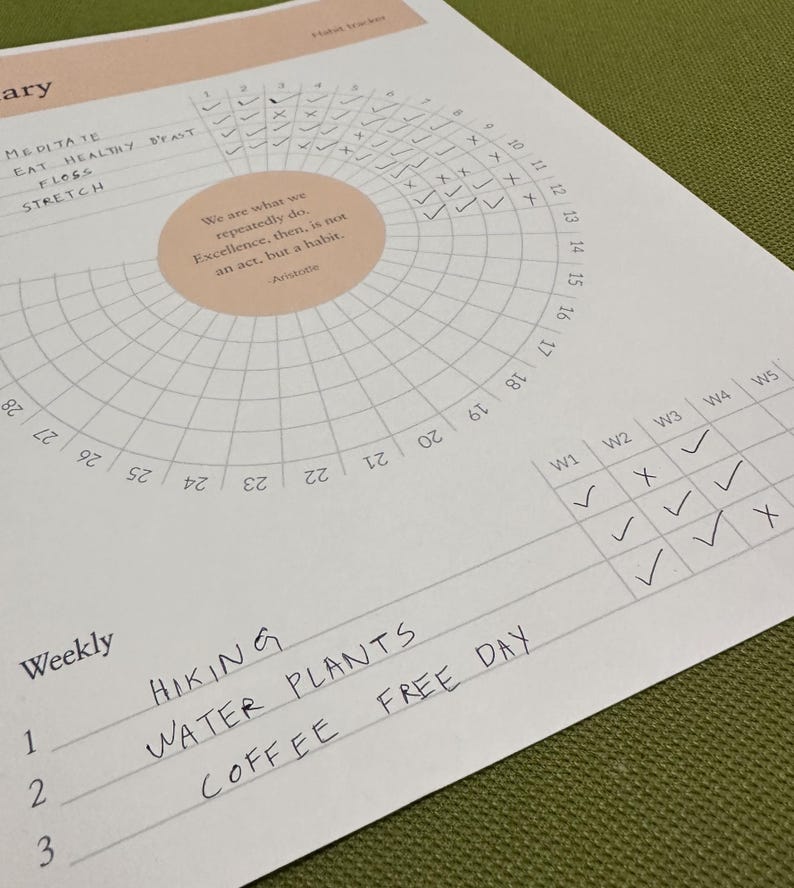 Habit tracker
ary
1 2 3 4 5 6 7 8 9 10 11 12 13 14 15 16 17 18 19 20 21 22 23 24 25 26 27 28
MEDITATE
EAT HEALTHY B'FAST
FLOSS
STRETCH
We are what we
repeatedly do.
Excellence, then, is not
an act, but a habit.
-Aristotle
W1 W2 W3 W4 W5
Weekly
1 HIKING
2 WATER PLANTS
3 COFFEE FREE DAY